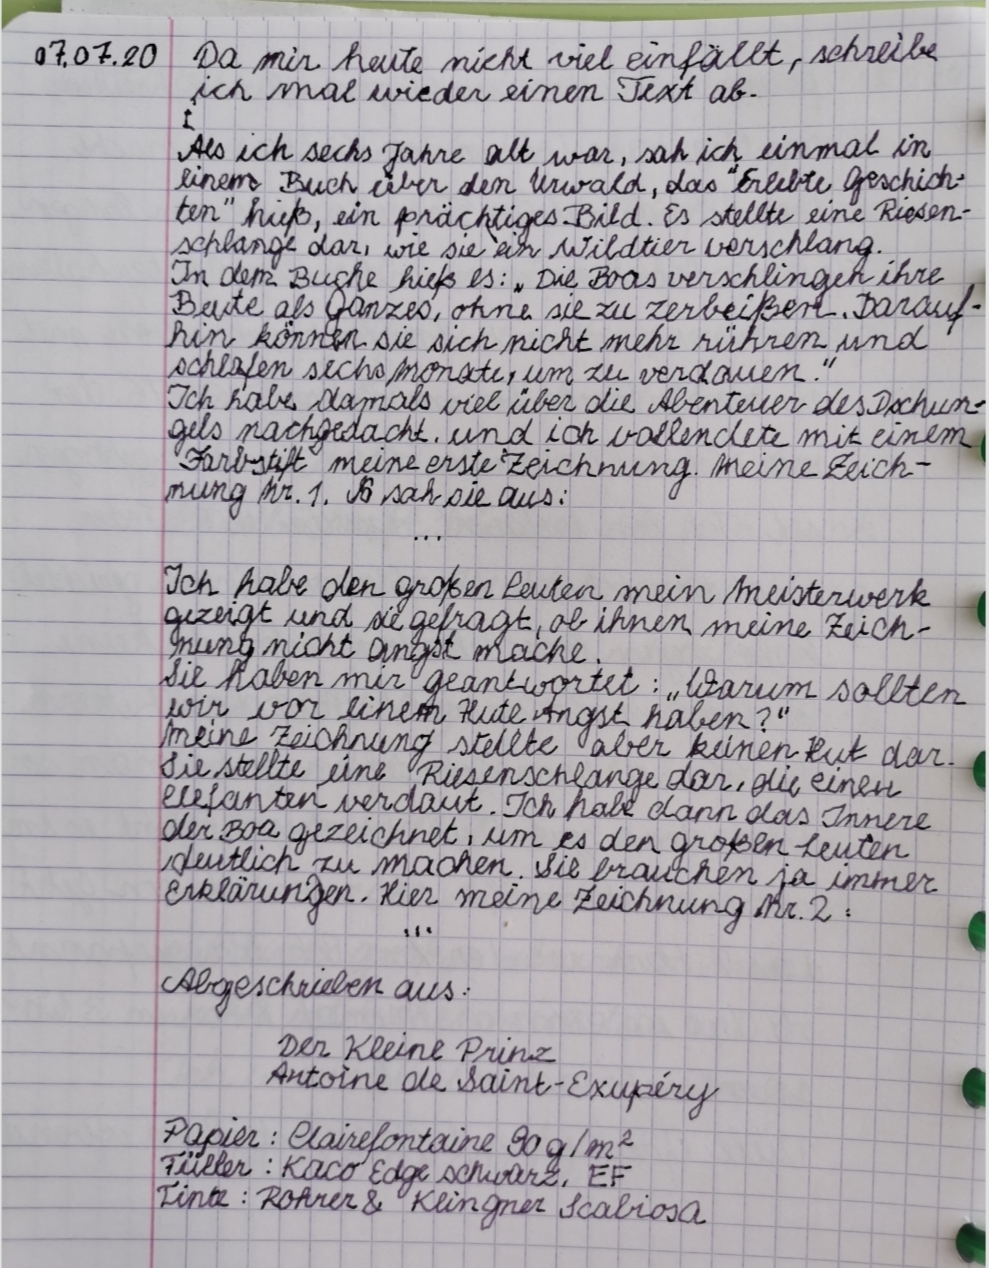 07.07.20 Da mir heute nicht viel einfällt, schreibe
ich mal wieder einen Text ab.
I
Als ich sechs Jahre alt war, sah ich einmal in
einem Buch über den Urwald, das "Erlebte Geschich-
ten" hieß, ein prächtiges Bild. Es stellte eine Riesen-
schlange dar, wie sie ein Wildtier verschlang.
In dem Buche hieß es: „Die Boas verschlingen ihre
Beute als Ganzes, ohne sie zu zerbeißen. Darauf-
hin können sie sich nicht mehr rühren und
schlafen sechs Monate, um zu verdauen."
Ich habe damals viel über die Abenteuer des Dschun-
gels nachgedacht, und ich vollendete mit einem
Farbstift meine erste Zeichnung. Meine Zeich-
nung Nr. 1. So sah sie aus:
...
Ich habe den großen Leuten mein Meisterwerk
gezeigt und sie gefragt, ob ihnen meine Zeich-
nung nicht Angst mache.
Sie haben mir geantwortet: „Warum sollten
wir vor einem Hute Angst haben?"
Meine Zeichnung stellte aber keinen Hut dar.
Sie stellte eine Riesenschlange dar, die einen
Elefanten verdaut. Ich habe dann das Innere
der Boa gezeichnet, um es den großen Leuten
deutlich zu machen. Sie brauchen ja immer
Erklärungen. Hier meine Zeichnung Nr. 2:
...
Abgeschrieben aus:
Der Kleine Prinz
Antoine de Saint-Exupéry
Papier: Clairefontaine 90 g/m²
Füller: Kaco Edge schwarz, EF
Tinte: Rohrer & Klingner Scabiosa